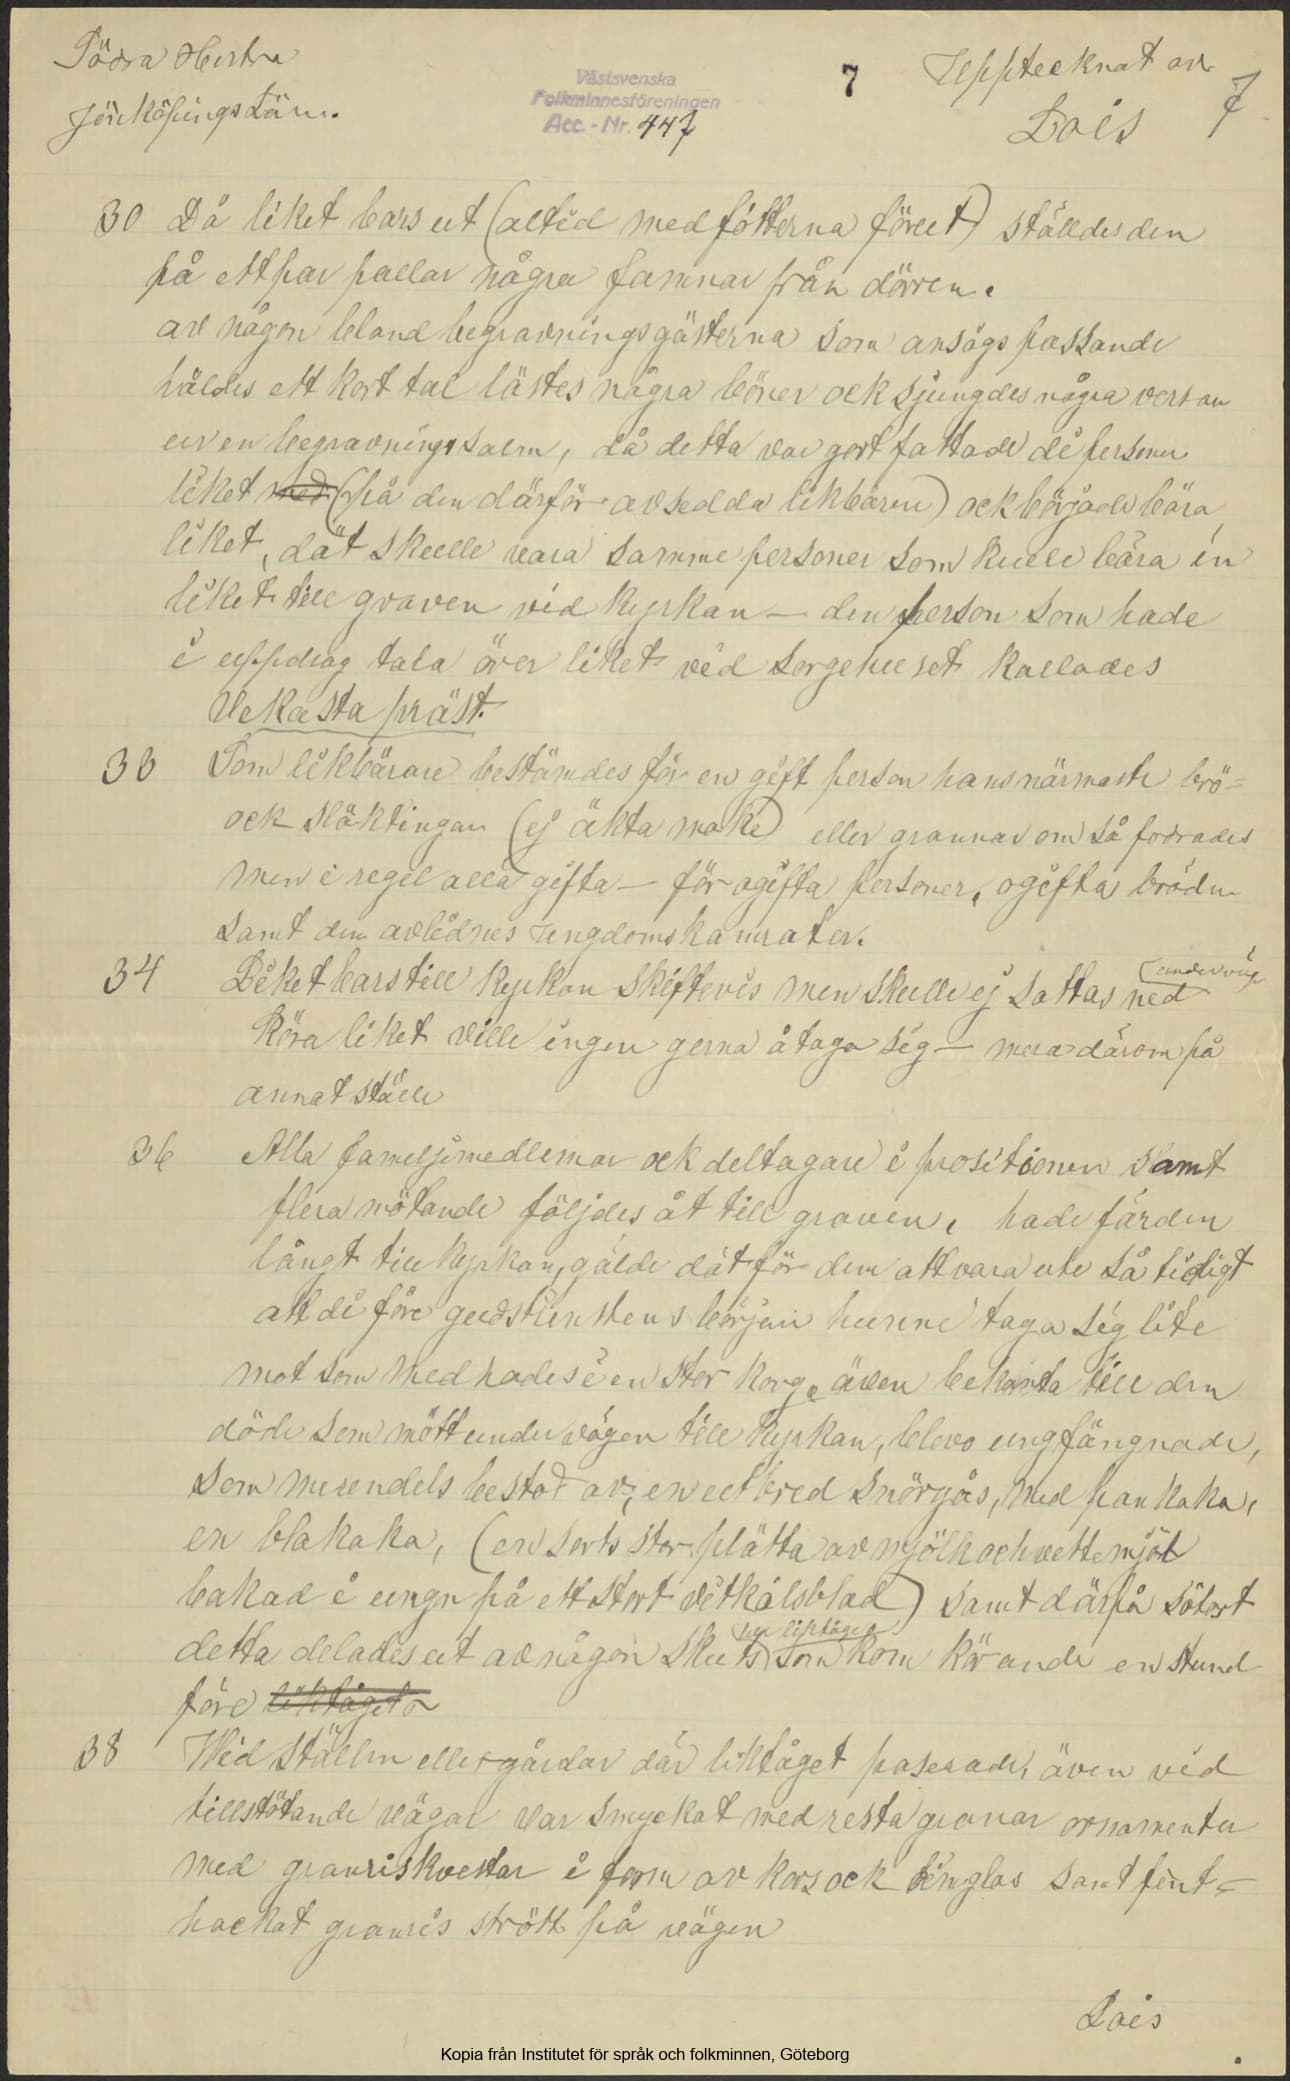 Södra Hestra
Jönköpings Län.
Västsvenska
Folkminnesföreningen
Acc.-Nr. 447
7
Upptecknat av
Lois
7
30 Då liket bars ut (altid med fötterna förut) ställdes den
på ett par pallar några famnar från dörren.
av någon bland begravningsgästerna som ansågs passande
häldes ett kort tal lästes några böner ock sjungdes några versar
ur en begravningspsalm, då detta var gort fattade de personer
liket med (på den därför avsedda likbåren) ock började bära
liket, dät skulle vara samme personer som skulle bära in
liket till graven vid kyrkan — den person som hade
i uppdrag tala över liket vid sorgehuset kallades
Uekasta präst.
33 Som likbärare bestämdes för en gift person hans närmaste brö=
ock släktingar (ej äkta make) eller grannar om så fodrades
men i regel alla gifta — för ogifta personer, ogifta bröder
samt den avlidnes Ungdomskamrater.
34 Liket bars till kyrkan skiftevis men skulle ej sattas ned (under väge
Köra liket ville ingen gerna åtaga sig — mera därom på
annat ställe
36 Alla familjemedlemar ock deltagare i prositionen samt
flera mötande följdes åt till graven, hade färden
långt till kyrkan, gälde dät för dem att vara ute så tidigt
att di före gudstienstens början hunne taga sig lite
mat som medhades i en stor korg, även bekanta till den
döde som mött under vägen till kyrkan, blevo ungfängnade,
som merendels bestod av, en ett bred smörgås, med pankaka,
en blakaka, (en sorts stor plätta av mjölk och vettemjöl
bakad i ungn på ett stort vitkålsblad) samt därpå sötost
detta delades ut av någon skuts som kom körande en stund
före liktåget
38 Wid ställen eller gårdar där liktåget paserade, även vid
tillstötande vägar var smyckat med resta granar ornamenter
med granriskvestar i form av kors ock ringlas samt fint=
hackat granris strött på vägen
Lois
Kopia från Institutet för språk och folkminnen, Göteborg